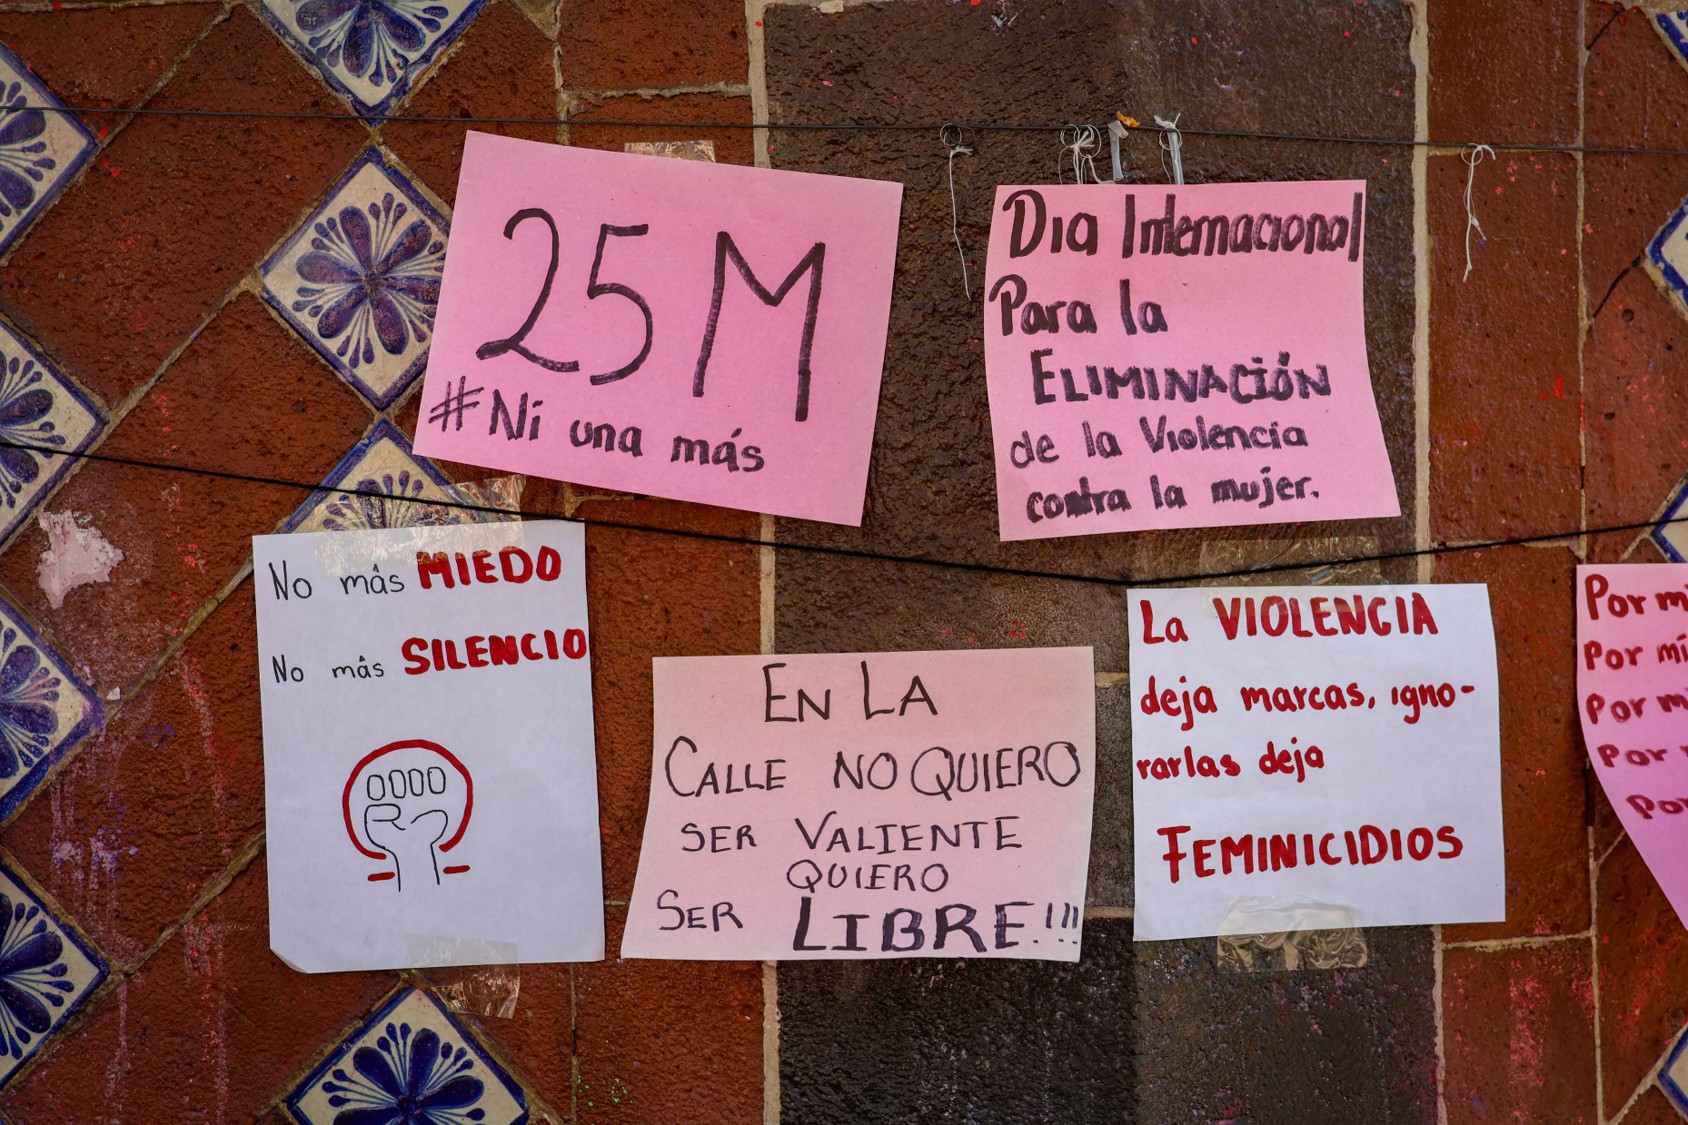 25M
#Ni una más
Dia Internacional
Para la
ELIMINACIÓN
de la Violencia
contra la mujer.
No más MIEDO
No más SILENCIO
EN LA
CALLE NO QUIERO
SER VALIENTE
QUIERO
SER LIBRE!!!
La VIOLENCIA
deja marcas, igno-
rarlas deja
FEMINICIDIOS
Por
Por mí
Por
Por
Por